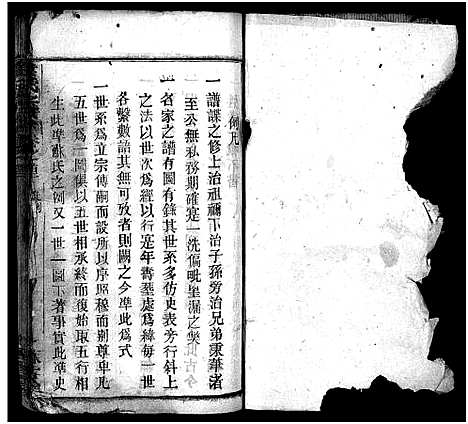 例凡
一譜諜之修上治祖禰下治子孫旁治兄弟秉筆者
至公無私務期確寔一洗偏毗呈漏之獘
一名家之譜有圖有錄其世系多仿史表旁行斜上
之法以世次爲經以行寔年壽葬處爲緯每一世
各繫數語其無可攷者則闕之今準此爲式
一世系爲立宗傳嗣而設所以序照穆而别尊卑凡
五世爲一圖俱以五世相承終而復始取五行相
生此準蘇氏之例又一世一圖下著事實此準史